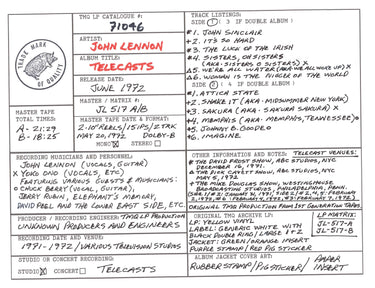 TMQ LP CATALOGUE #:
71046
ARTIST:
JOHN LENNON
ALBUM TITLE:
TELECASTS
RELEASE DATE:
JUNE 1972
TRADE MARK
OF QUALITY
MASTER TAPE
TOTAL TIMES:
A-21:29
B-18:25
MASTER / MATRIX #:
JL 517 A/B
MASTER TAPE DATE & FORMAT:
2-10" REELS/15 IPS/2 TRK
MAY 20, 1972 DOLBY-B
MONO STEREO
TRACK LISTINGS:
SIDE 1: 3 IF DOUBLE ALBUM!
*1. JOHN SINCLAIR
*2. IT'S SO HARD
*3. THE LUCK OF THE IRISH
*4. SISTERS, OH SISTERS
(AKA: SISTERS O SISTERS)
Δ5. WE'RE ALL WATER (AKA WE ALL WOKE UP)
Δ6. WOMAN IS THE NIGGER OF THE WORLD
SIDE 2: 4 IF DOUBLE ALBUM!
*1. ATTICA STATE
2. SHAKE IT (AKA: MIDSUMMER NEW YORK)
3. SAKURA (AKA: SAKURA SAKURA)
4. MEMPHIS (AKA: MEMPHIS, TENNESSEE)
5. JOHNNY B. GOODE
6. IMAGINE
RECORDING MUSICIANS AND PERSONNEL:
JOHN LENNON (VOCALS, GUITAR)
YOKO ONO (VOCALS, ETC.)
FEATURING VARIOUS GUESTS & MUSICIANS:
CHUCK BERRY (VOCAL, GUITAR),
JERRY RUBIN, ELEPHANT'S MEMORY,
DAVID PEEL AND THE LOWER EAST SIDE, ETC.
OTHER INFORMATION AND NOTES: TELECAST VENUES:
* THE DAVID FROST SHOW, ABC STUDIOS, NYC
DECEMBER 16, 1971.
Δ THE DICK CAVETT SHOW, ABC STUDIOS, NYC
MAY 5, 1972
THE MIKE DOUGLAS SHOW, WESTINGHOUSE
BROADCASTING STUDIOS, PHILADELPHIA, PENN.
ORIGINAL TMQ PRODUCTION FROM 1ST GENERATION TAPES
PRODUCER / RECORDING ENGINEER: TMQ LP PRODUCTION
UNKNOWN PRODUCERS AND ENGINEERS
RECORDING DATE AND VENUE:
1971-1972 / VARIOUS TELEVISION STUDIOS
STUDIO OR CONCERT RECORDING:
STUDIO CONCERT TELECASTS
ORIGINAL TMQ ARCHIVE LP:
LP: YELLOW VINYL
LABEL: GENERIC WHITE WITH
BLACK DOUBLE RING / LARGE 1 & 2
JACKET: GREEN/ORANGE INSERT
PURPLE STAMP / RED PIG STICKER
LP MATRIX:
JL-517-A
JL-517-B
ALBUM JACKET COVER ART:
RUBBER STAMP/PIG STICKER/ PAPER INSERT